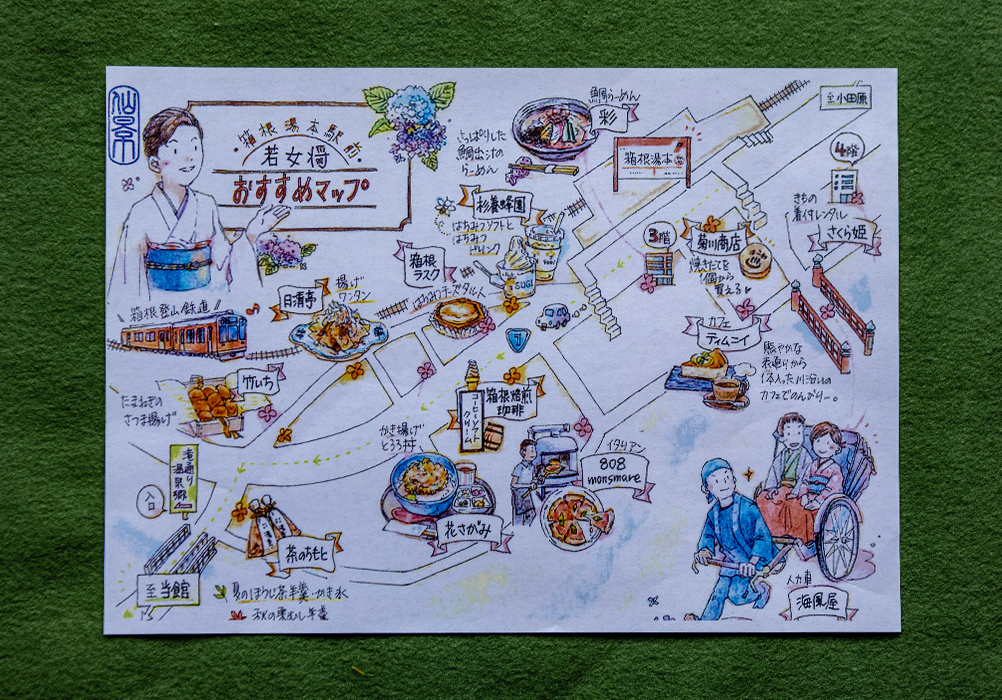 仙景
箱根湯本駅前
若女将
おすすめマップ
鯛らーめん
彩
さっぱりした
鯛出汁の
らーめん
箱根湯本
至小田原
4階
きもの
着付レンタル
さくら姫
杉養蜂園
はちみつソフトと
はちみつ
ドリンク
SUGI
3階
菊川商店
焼きたてを
1個から
買える♥
箱根
ラスク
はちみつチーズタルト
日清亭
揚げ
ワンタン
箱根登山鉄道
カフェ
ティムニイ
賑やかな
表通りから
1本入った川沿いの
カフェでのんびりー。
竹いち
たまねぎの
さつま揚げ
箱根焙煎
珈琲
コーヒーソフト
クリーム
かき揚げ
とろろ丼
花さがみ
イタリアン
808
monsmare
滝通り
温泉郷
入口
至当館
茶のちもと
夏のほうじ茶羊羹・かき氷
秋の栗むし羊羹
人力車
海風屋